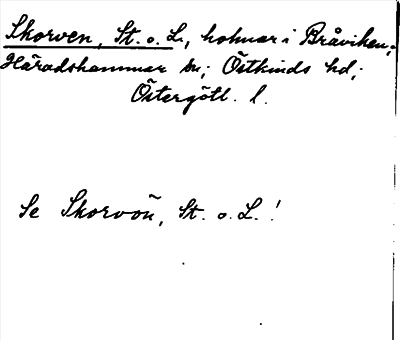 Skorven, St. o. L., holmar i Bråviken,
Häradshammar sn; Östkinds hd;
Östergötl. l.
Se Skorvön, St. o. L.!